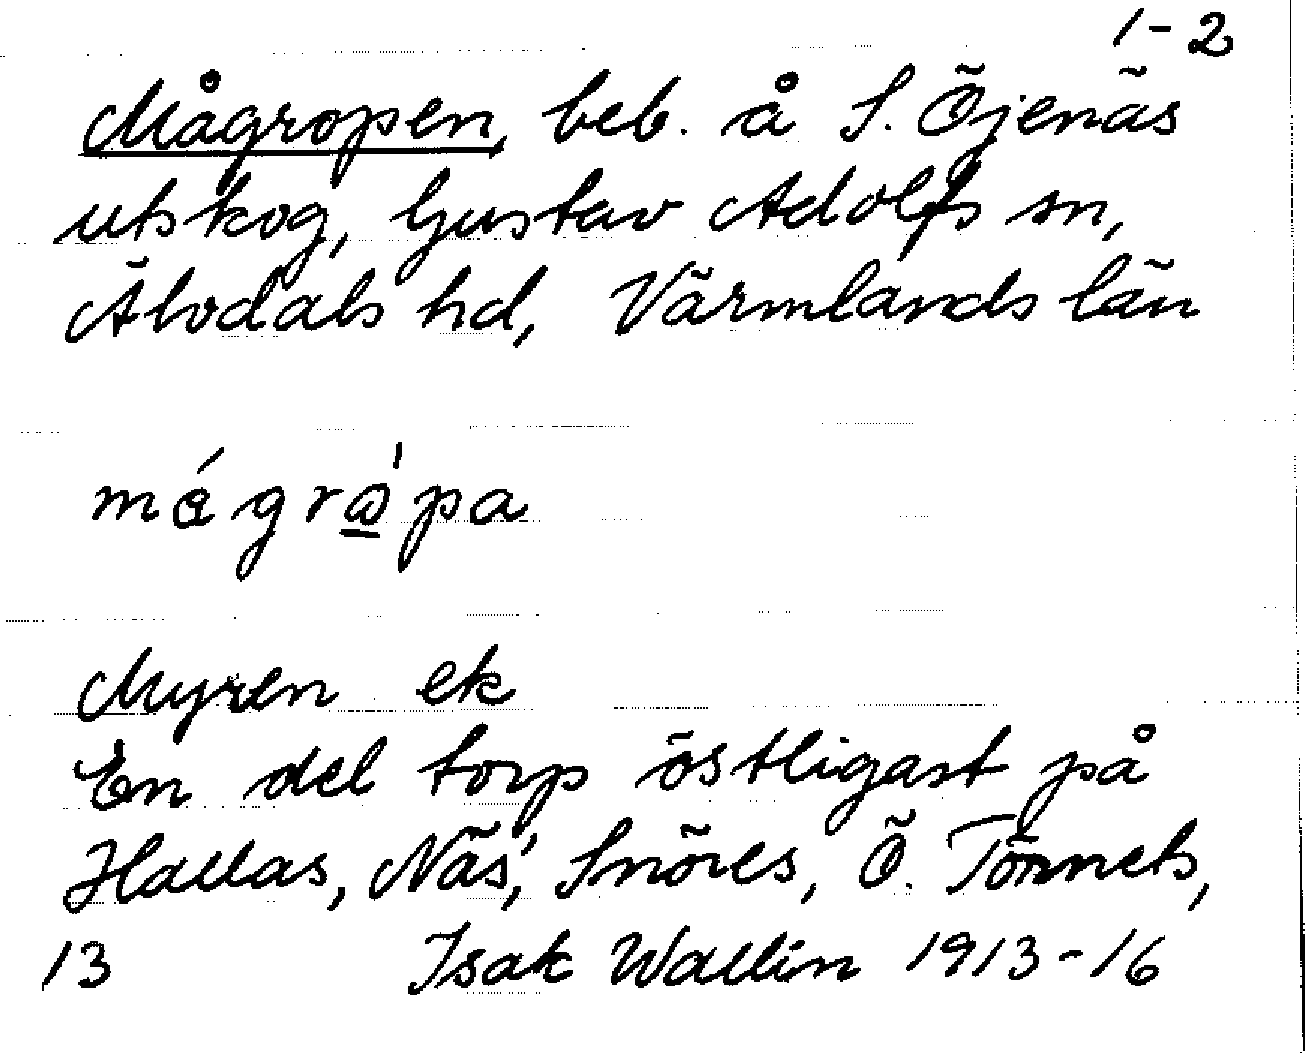 1-2
Mågropen, beb. å S. Öjenäs
utskog, Gustav Adolfs sn,
Älvdals hd, Värmlands län
mágrώ̲pa
Myren ek
En del torp östligast på
Hallas, Näs', Snöres, Ö. Tönnets,
13 Isak Wallin 1913-16